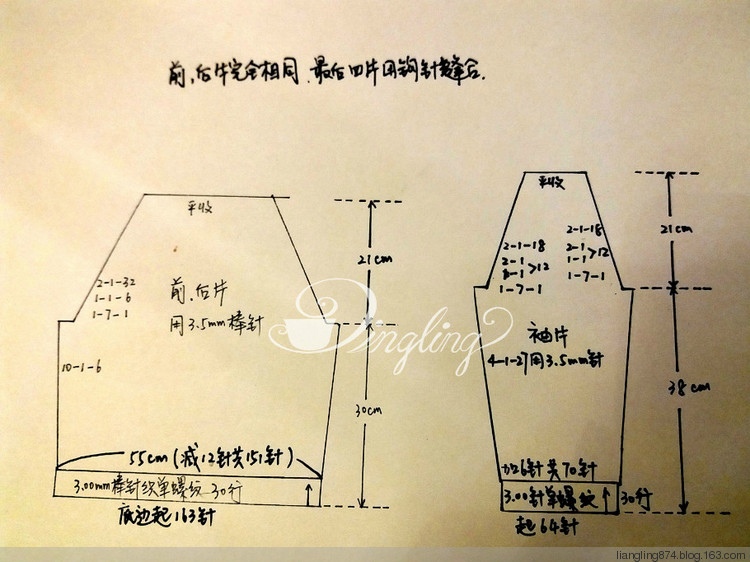 前、后片完全相同、最后四片用钩针缝合.
平收
21cm
2-1-32
1-1-6
1-7-1
前、后片
用3.5mm棒针
10-1-6
30cm
55cm(减12针共151针)
3.00mm棒针织单螺纹 30行
底边起163针
平收
21cm
2-1-18
2-1
1-1 >12
1-7-1
2-1-18
2-1
1-1 >12
1-7-1
袖片
4-1-27用3.5mm针
38cm
加6针共70针
3.00针单螺纹 30行
起64针
Dingling
liangling874.blog.163.com